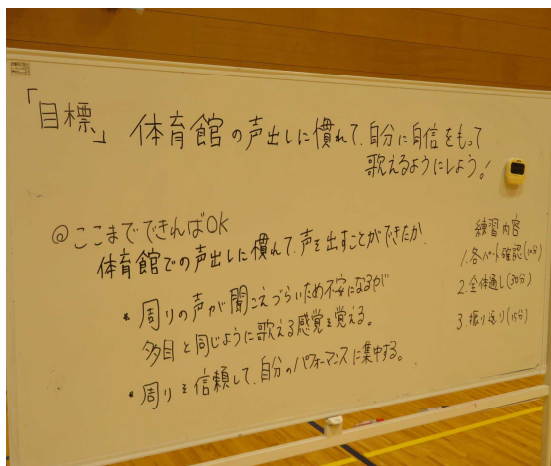 「目標」 体育館の声出しに慣れて、自分に自信をもって
歌えるようにしよう!
@ここまでできればOK
体育館での声出しに慣れて、声を出すことができたか。
• 周りの声が聞こえづらいため不安になるが
多目と同じように歌える感覚を覚える。
• 周りを信頼して、自分のパフォーマンスに集中する。
練習内容
1.各パート確認(10分)
2.全体通し(30分)
3.振り返り(15分)